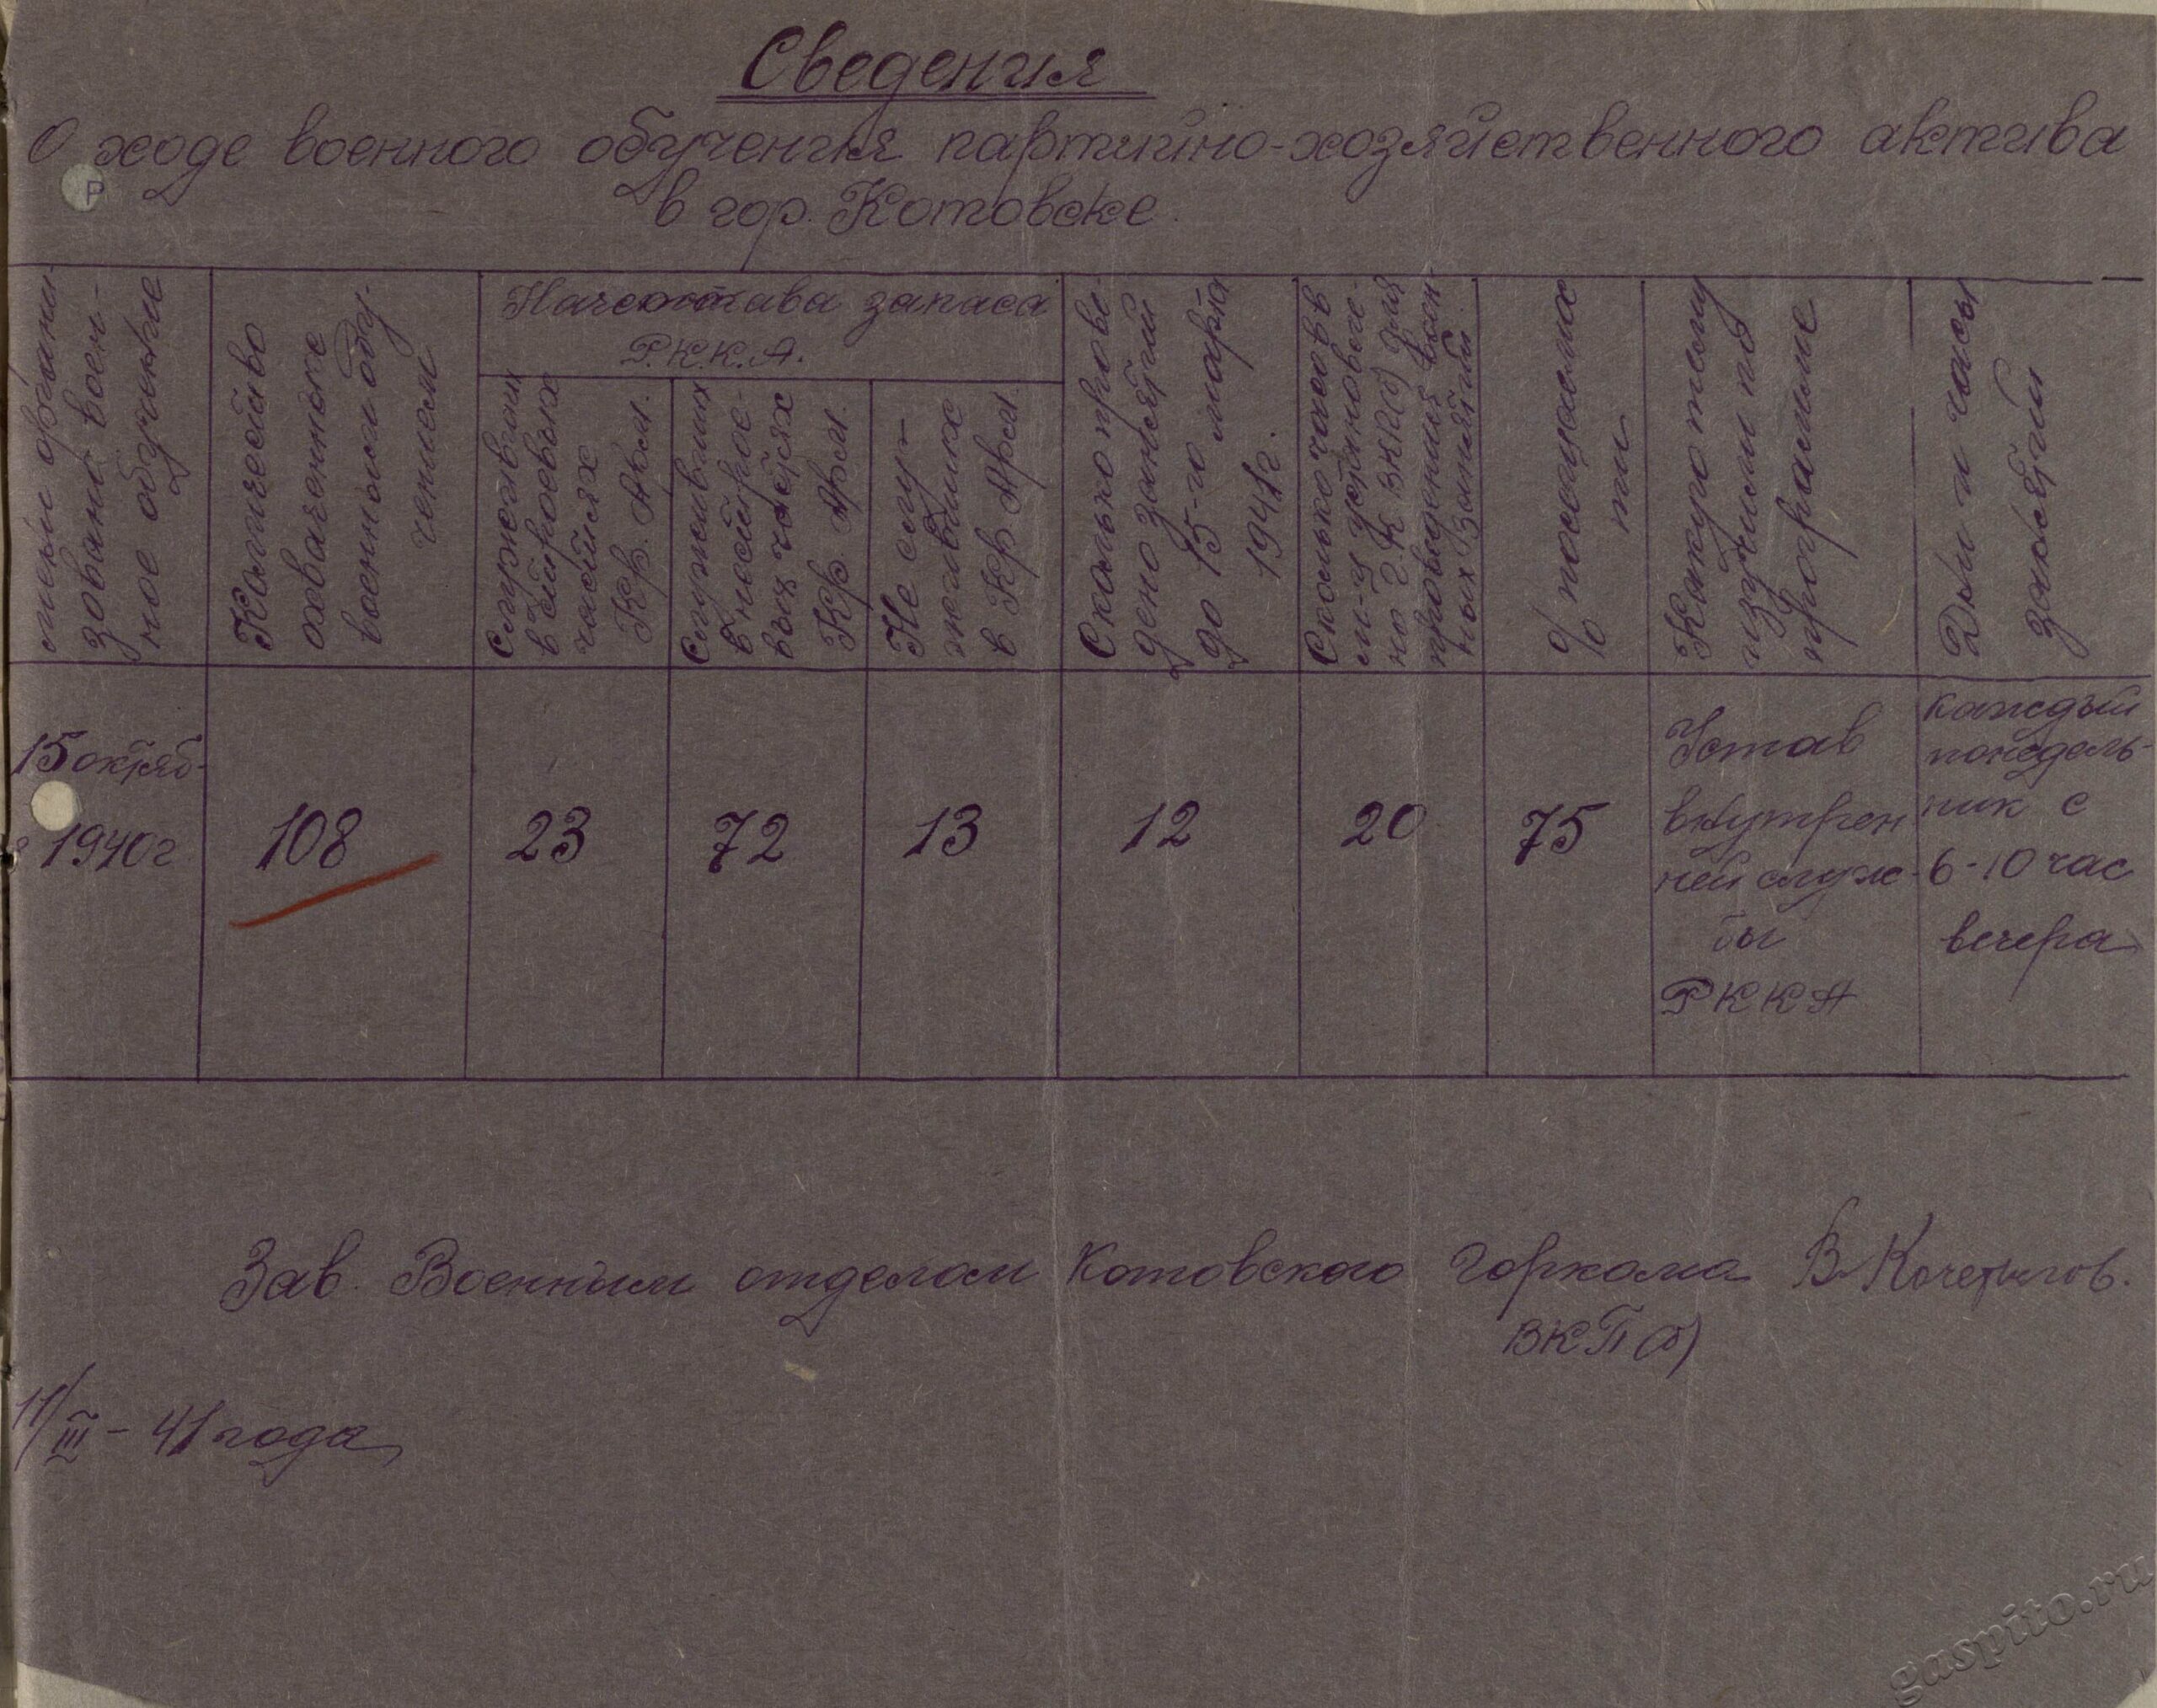 Сведения
О ходе военного обучения партийно-хозяйственного актива
в гор. Котовске.
органи-
зовано воен-
ное обучение
Количество
охваченного
военным обу-
чением
Начсостава запаса
Р.К.К.А.
Служивших
в строевых
частях
Кр. Арм.
Служивших
в нестрое-
вых частях
Кр. Арм.
Не слу-
живших
в Кр. Арм.
Сколько прове-
дено занятий
до 15-го марта
1941г.
Сколько часов в
м-ц установле-
но Г.К ВКП(б) для
проведения воен-
ных занятий
% посещаемос
ти
Какую тему
изучили по
программе
Дни и часы
занятий
15 октяб-
1940г
108
23
72
13
12
20
75
Устав
внутрен
ней служ-
бы
РККА
каждый
понедель-
ник с
6-10 час
вечера
Зав. Военным отделом Котовского Горкома В Кочетыгов.
ВКП(б)
11/III - 41 года
gaspito.ru